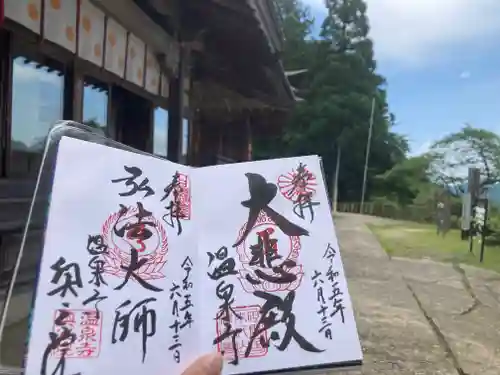 奉拝
大悲殿
温泉寺
令和五年
六月十三日
奉拝
弘法大師
温泉寺
奥の院
令和五年
六月十三日
温泉寺